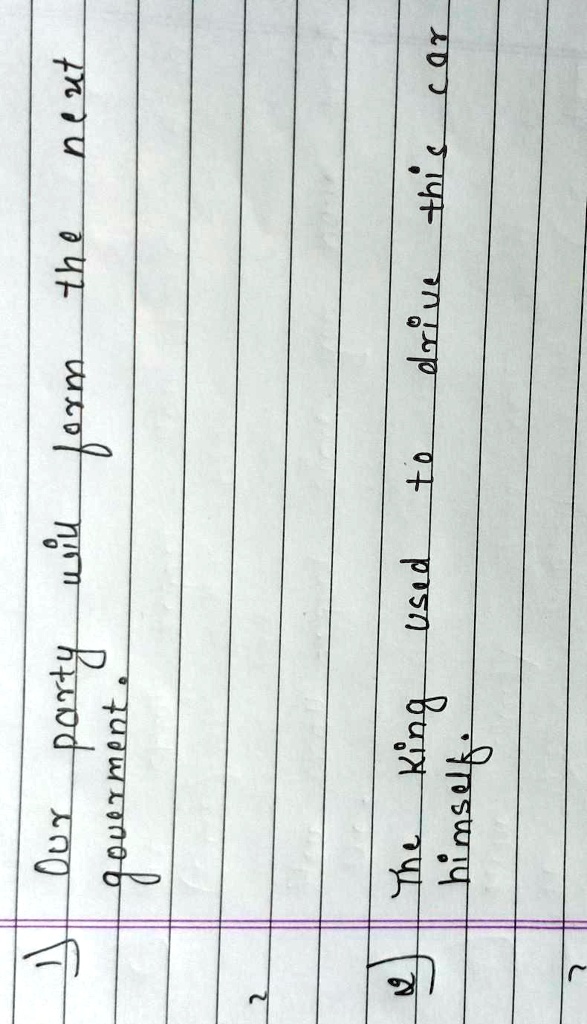 1) Our party will form the next
goverment.
?
2) The King used to drive this car
himself.
?